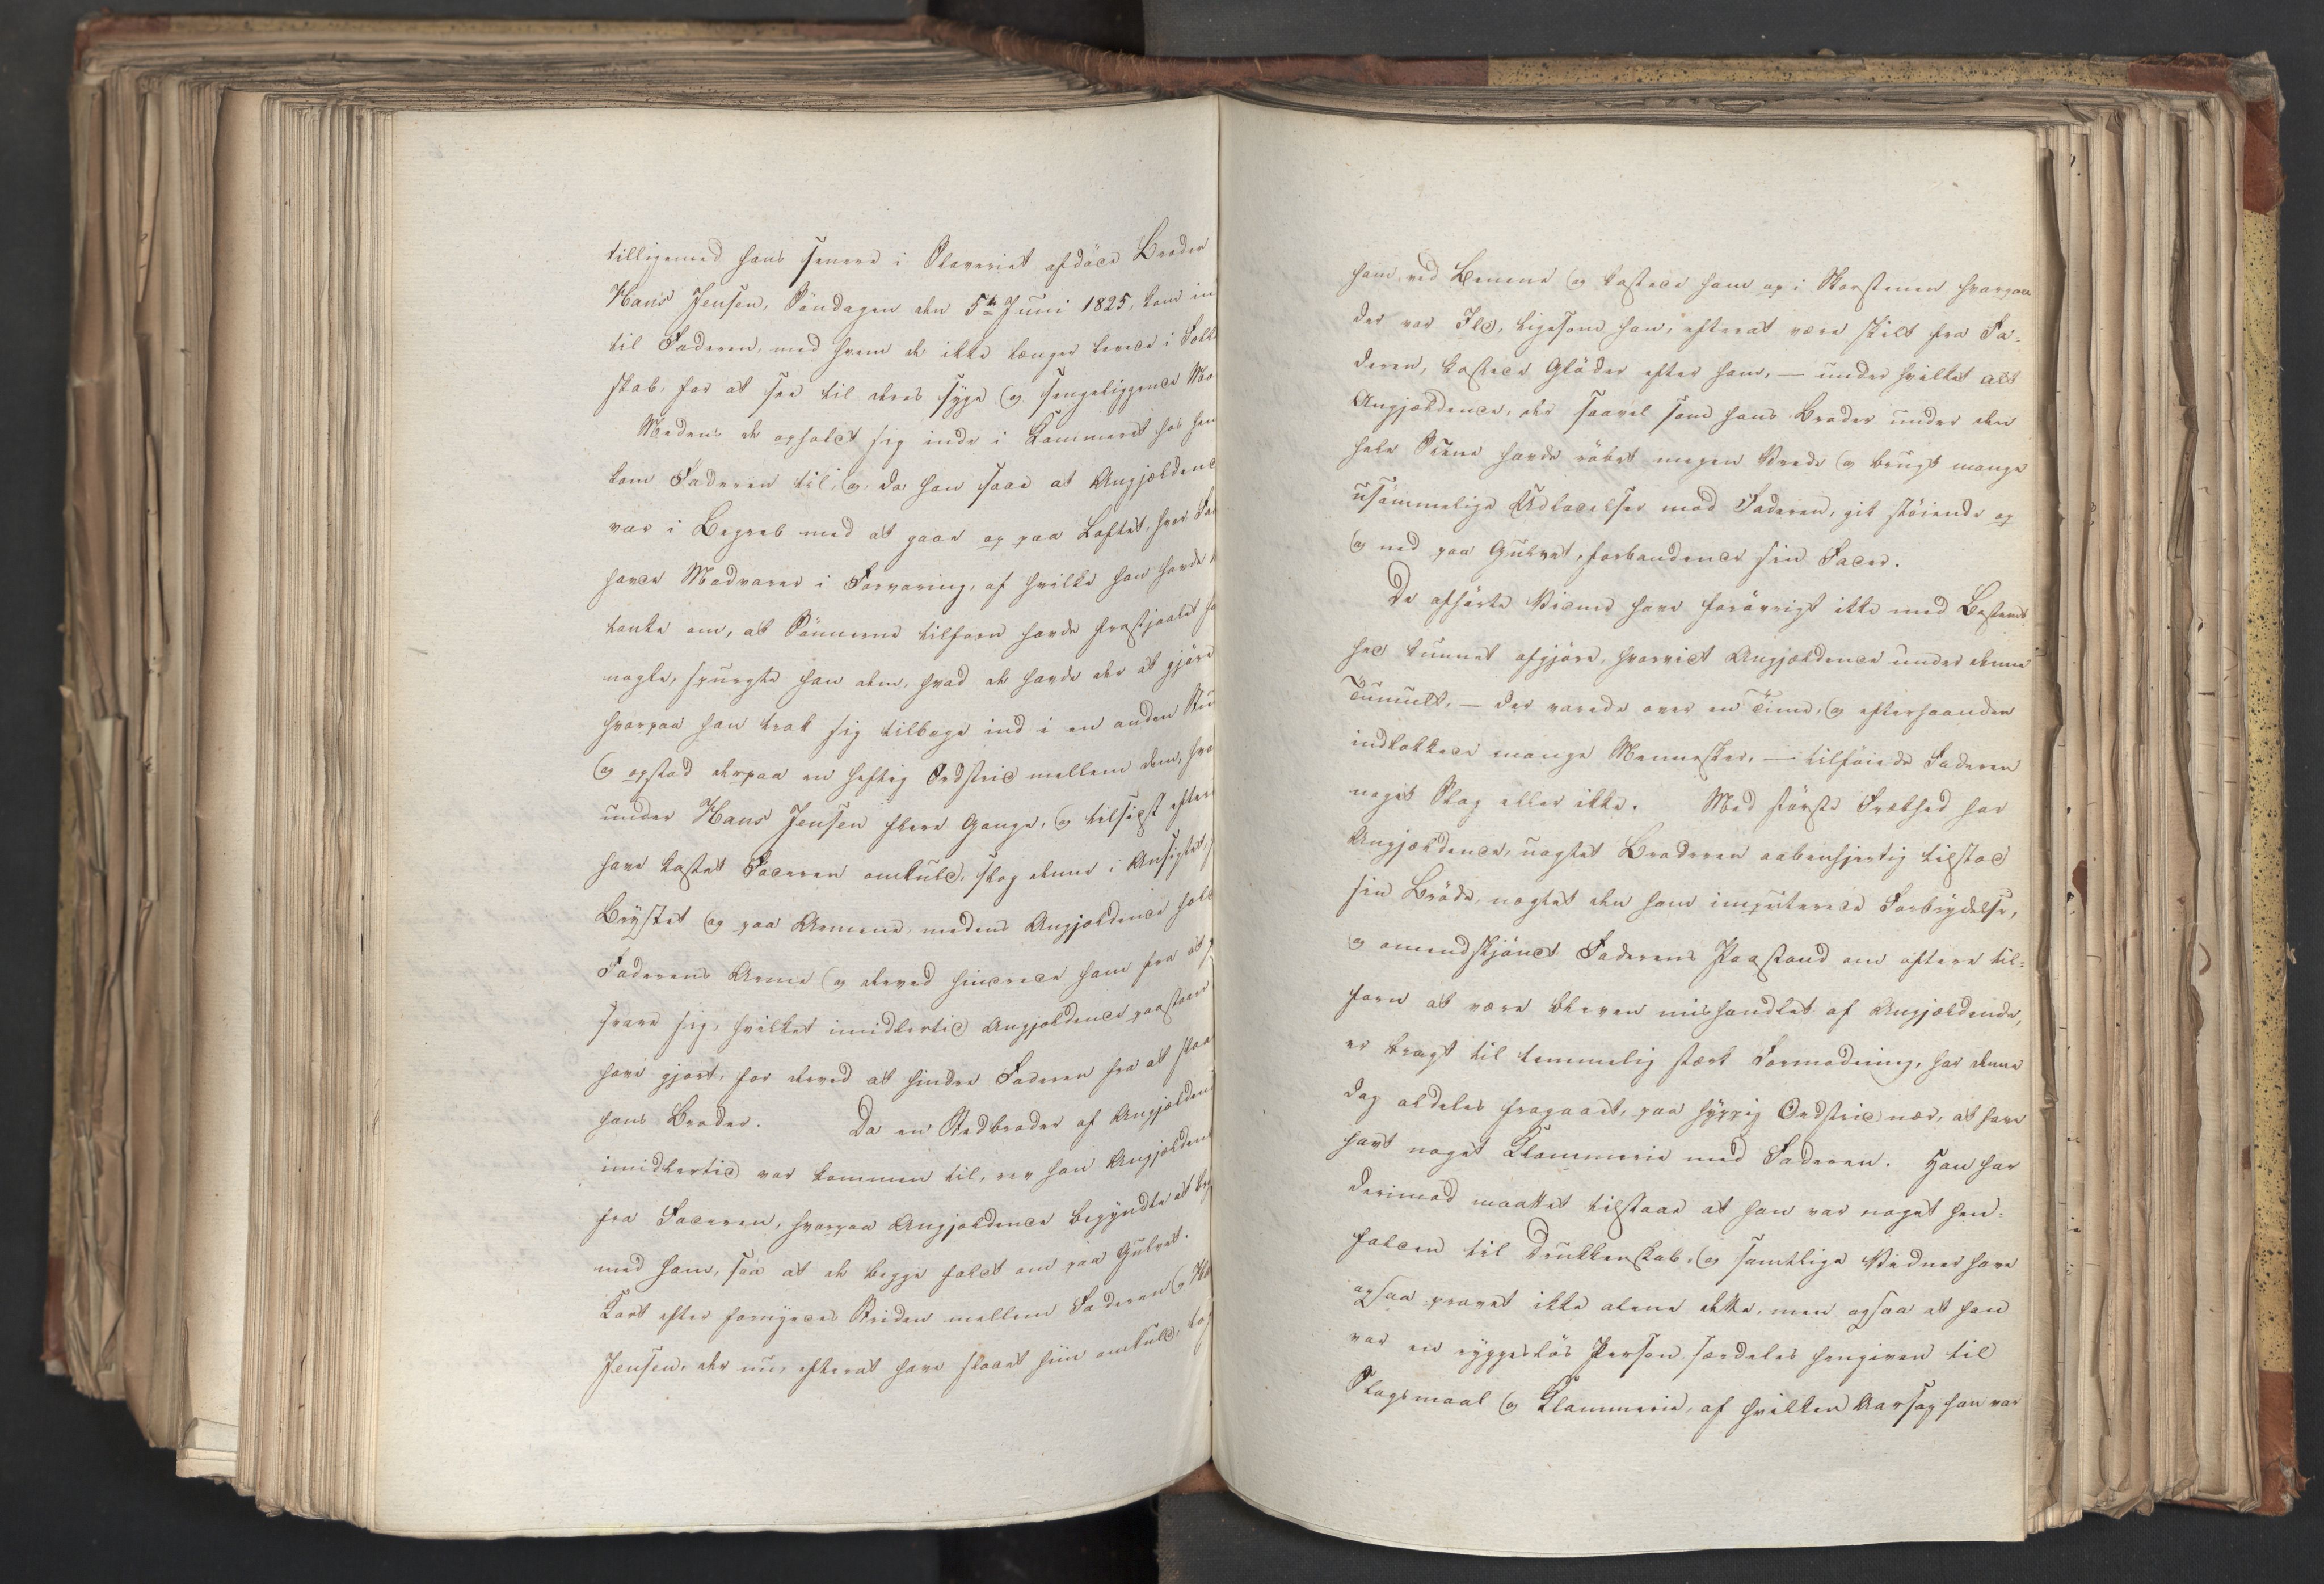 tilligemed hans senere i Slaveriet afdöde Broder
Hans Jensen, Söndagen den 5te Juni 1825, kom in
til Faderen, med hvem de ikke længer levede i Fælle
skab, for at see til deres syge og sengeliggende Mo
Medens de opholdt sig inde i Kammeret hos hen
kom Faderen til, og, da han saae at Angjældend
var i Begreb med at gaae op paa Loftet, hvor Fad
havde Madvarer i Forvaring, af hvilke han havde
tanke om, at Sönnerne tilforn havde frastjaalet h
nogle, spurgte han dem, hvad de havde der at gjöre
hvorpaa han trak sig tilbage ind i en anden Stu
og opstod derpaa en heftig Ordstrid mellem dem, hvor
under Hans Jensen flere Gange, og tilsidst efter
have kastet Faderen omkuld, slog denne i Ansigtet,
Brystet og paa Armene, medens Angjældende holdt
Faderens Arme og derved hindrede ham fra at
svare sig, hvilket imidlertid Angjældende paastaaer
have gjort, for derved at hindre Faderen fra at slaae
hans Broder. Da en Stedbroder af Angjælden
imidlertid var kommen til, rev han Angjælden
fra Faderen, hvorpaa Angjældende begyndte at
med ham, saa at de begge faldt om paa Gulvet.
Kort efter fornyedes Striden mellem Faderen og Ha
Jensen, der nu, efterat have slaaet hiin omkuld, tog
ham ved Benene og kastede ham op i Skorstenen hvorpaa
der var Ild, ligesom han, efterat være skilt fra Fa-
deren, kastede Glöder efter ham, — under hvilket alt
Angjældende, der saavel som hans Broder under den
hele Scene havde röbet megen Vrede og brugt mange
usömmelige Udladelser mod Faderen, gik stöiende op
og ned paa Gulvet, forbandende sin Fader.
De afhörte Vidner have forövrigt ikke med Bestemt-
hed kunnet afgjöre, hvorvidt Angjældende under denne
Tumult, — der varede over en Time, og efterhaanden
indlokkede mange Mennesker, — tilföiede Faderen
noget Slag eller ikke. Med störste Frækhed har
Angjældende, uagtet Broderen aabenhjertig tilstod
sin Bröde, nægtet den ham imputerede Forbrydelse,
og omendskjöndt Faderens Paastand om oftere til-
forn at være bleven mishandlet af Angjældende,
er bragt til temmelig stærk Formodning, har denne
dog aldeles fragaaet, paa hyppig Ordstrid nær, at have
havt noget Klammerie med Faderen. Han har
derimod maattet tilstaae at han var noget hen-
falden til Drukkenskab, og samtlige Vidner have
ogsaa provet ikke alene dette, men ogsaa at han
var en ryggeslös Person, særdeles hengiven til
Slagsmaal og Klammerie, af hvilken Aarsag han var